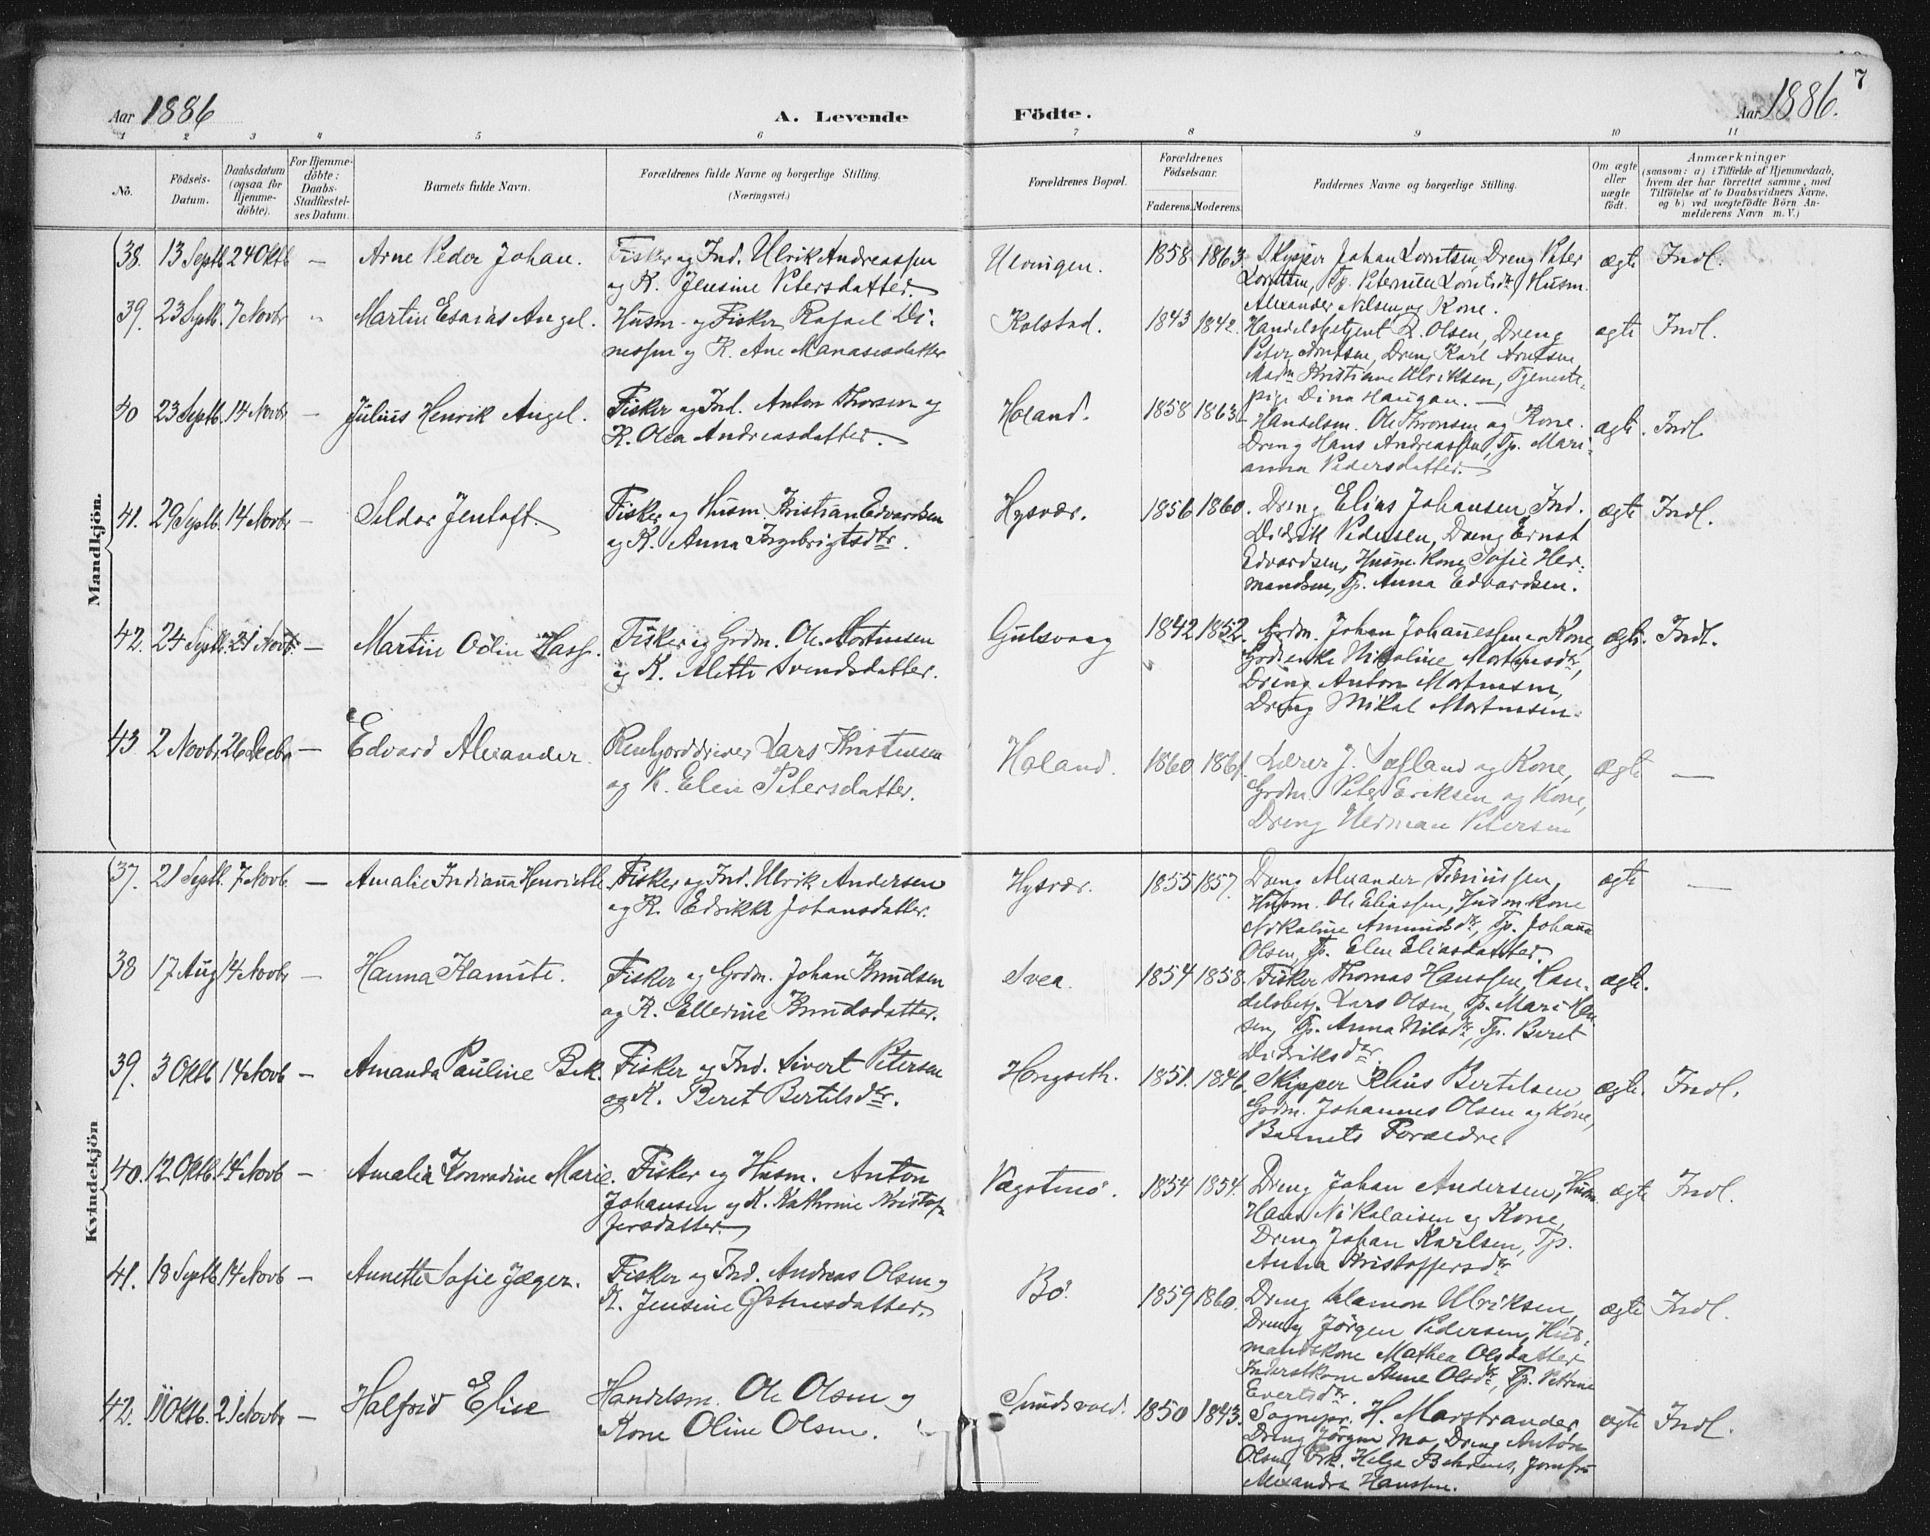 Aar 1886
A. Levende
Födte.
Aar 1886.
7
1 2 3 4 5 6 7 8 9 10 11
No.
Födsels-
Datum.
Daabsdatum
(ogsaa for
Hjemme-
döbte).
For Hjemme-
döbte:
Daabs-
Stadfæstel-
ses Datum.
Barnets fulde Navn.
Forældrenes fulde Navne og borgerlige Stilling.
(Næringsvei.)
Forældrenes Bopæl.
Forældrenes
Födselsaar.
Faderens. Moderens.
Faddernes Navne og borgerlige Stilling.
Om ægte
eller
uægte
födt.
Anmærkninger
(saasom: a) i Tilfælde af Hjemmedaab,
hvem der har forrettet samme, med
Tilföielse af to Daabsvidners Navne,
og b) ved uægtefödte Börn An-
melderens Navn m. V.)
Mandkjön.
38. 13 Septb 24 Oktb — Arne Peder Johan.
Fisker og Ind. Ulrik Andreassen
og K. Jensine Petersdatter.
Ulvingen. 1858 1863.
Skipper Johan Lorntsen, Dreng Peter
Lorntsen, Tp. Peternille Lorntsdtr, Husm.
Alexander Nilsen og Kone.
ægte Indl.
39. 23 Septb. 7 Novbr " Martin Esaias Angel.
Husm. og Fisker Rafael Di-
nessen og K. Ane Manasesdatter
Kolstad. 1843 1842.
Handelsbetjent R. Olsen, Dreng
Peter Arntsen, Dreng Karl Arntsen,
Madm Kristiane Ulriksen, Tjeneste-
pige Dina Haugan. —
ægte Indl.
40 23 Septb. 14 Novbr — Julius Henrik Angel.
Fisker og Ind. Anton Thorsen og
K. Olea Andreasdatter.
Holand. 1858 1863.
Handelsm. Ole Thronsen og Kone.
Dreng Hans Andreassen, Tp. Mari-
anna Pedersdatter.
ægte. Indl.
41. 29 Septb. 14 Novbr — Seldor Jentoft.
Fisker og Husm. Kristian Edvardsen
og K. Anna Ingebrigtsdtr.
Hysvær. 1856 1860.
Dreng Elias Johansen, Ind.
Didrik Pedersen, Dreng Ernst
Edvardsen, Husm. Kone Sofie Her-
mandsen, Tp. Anna Edvardsen.
ægte Indl.
42. 24 Septb. 21 Novb. — Martin Odin Hass.
Fisker og Grdm. Ole Mortensen
og K. Alette Svendsdatter.
Gulsvaag 1842 1852.
Grdm. Johan Johannessen og Kone,
Grdenke Nikoline Mortensdtr,
Dreng Anton Mortensen,
Dreng Mikal Mortensen.
ægte. Indl.
43. 2 Novbr. 26 Decbr — Edvard Alexander.
Renhjorddriver Lars Kristensen
og K. Elen Petersdatter.
Holand. 1860 1861.
Lærer J. Sæfland og Kone,
Grdm. Peter Eriksen og Kone,
Dreng Herman Petersen
ægte —
Kvindekjön
37. 21 Septb. 7 Novb. — Amalie Indianna Henriette.
Fisker og Ind. Ulrik Andersen
og K. Edrikke Johansdatter.
Hysvær. 1855 1857.
Dreng Alexander
Husm. Ole Eliassen, Husm. kone
Nikoline Amundsdtr, Tp. Johanna
Olsen, Tp. Elen Eliasdatter.
ægte —
38 17 Aug 14 Novbr — Hanna Kamite.
Fisker og Grdm. Johan Knudsen
og K. Ellerine Knudsdatter.
Svea. 1854 1858.
Fisker Thomas Hanssen, Han-
delsbetj. Lars Olsen, Tp. Mari
Tp. Anna Nilsdtr, Tp. Beret
Didriksdtr.
ægte.
39. 3 Oktb 14 Novb — Amanda Pauline Bek.
Fisker og Ind. Sivert Petersen
og K. Beret Bertilsdtr.
Hongseth. 1851. 1846.
Skipper Klaus Bertelsen,
Grdm. Johannes Olsen og Kone,
Barnets Forældre.
ægte. Indl.
40. 12 Oktb. 14 Novb — Amalia Konradine Marie.
Fisker og Husm. Anton
Johansen og K. Kathrine Kristof-
fersdatter.
Vagotmo. 1854 1854.
Dreng Johan Andersen, Husm.
Hans Nikolaisen og Kone,
Dreng Johan Karlsen, Tp.
Anna Kristoffersdtr
ægte Indl.
41. 18 Septb 14 Novb — Annette Sofie Jæger.
Fisker og Ind. Andreas Olsen og
K. Jensine Østensdatter.
Bø. 1859 1860.
Dreng Salamon Ulriksen,
Dreng Jörgen Pedersen, Hus-
mandskone Mathea Olsdatter
Inderstkone Anne Olsdtr, Tp. Petrine
Evertsdtr.
ægte Indl.
42. 11 Oktb. 21 Novbr — Halfrid Elise
Handelsm. Ole Olsen og
Kone Oline Olsen.
Sundsvold. 1850 1843.
Sognepr. H. Marstrander,
Dreng Jörgen Mo, Dreng Anton
Olsen, Frk. Helga Behrens, Jomfru
Alexandra Hanssen.
ægte Indl.